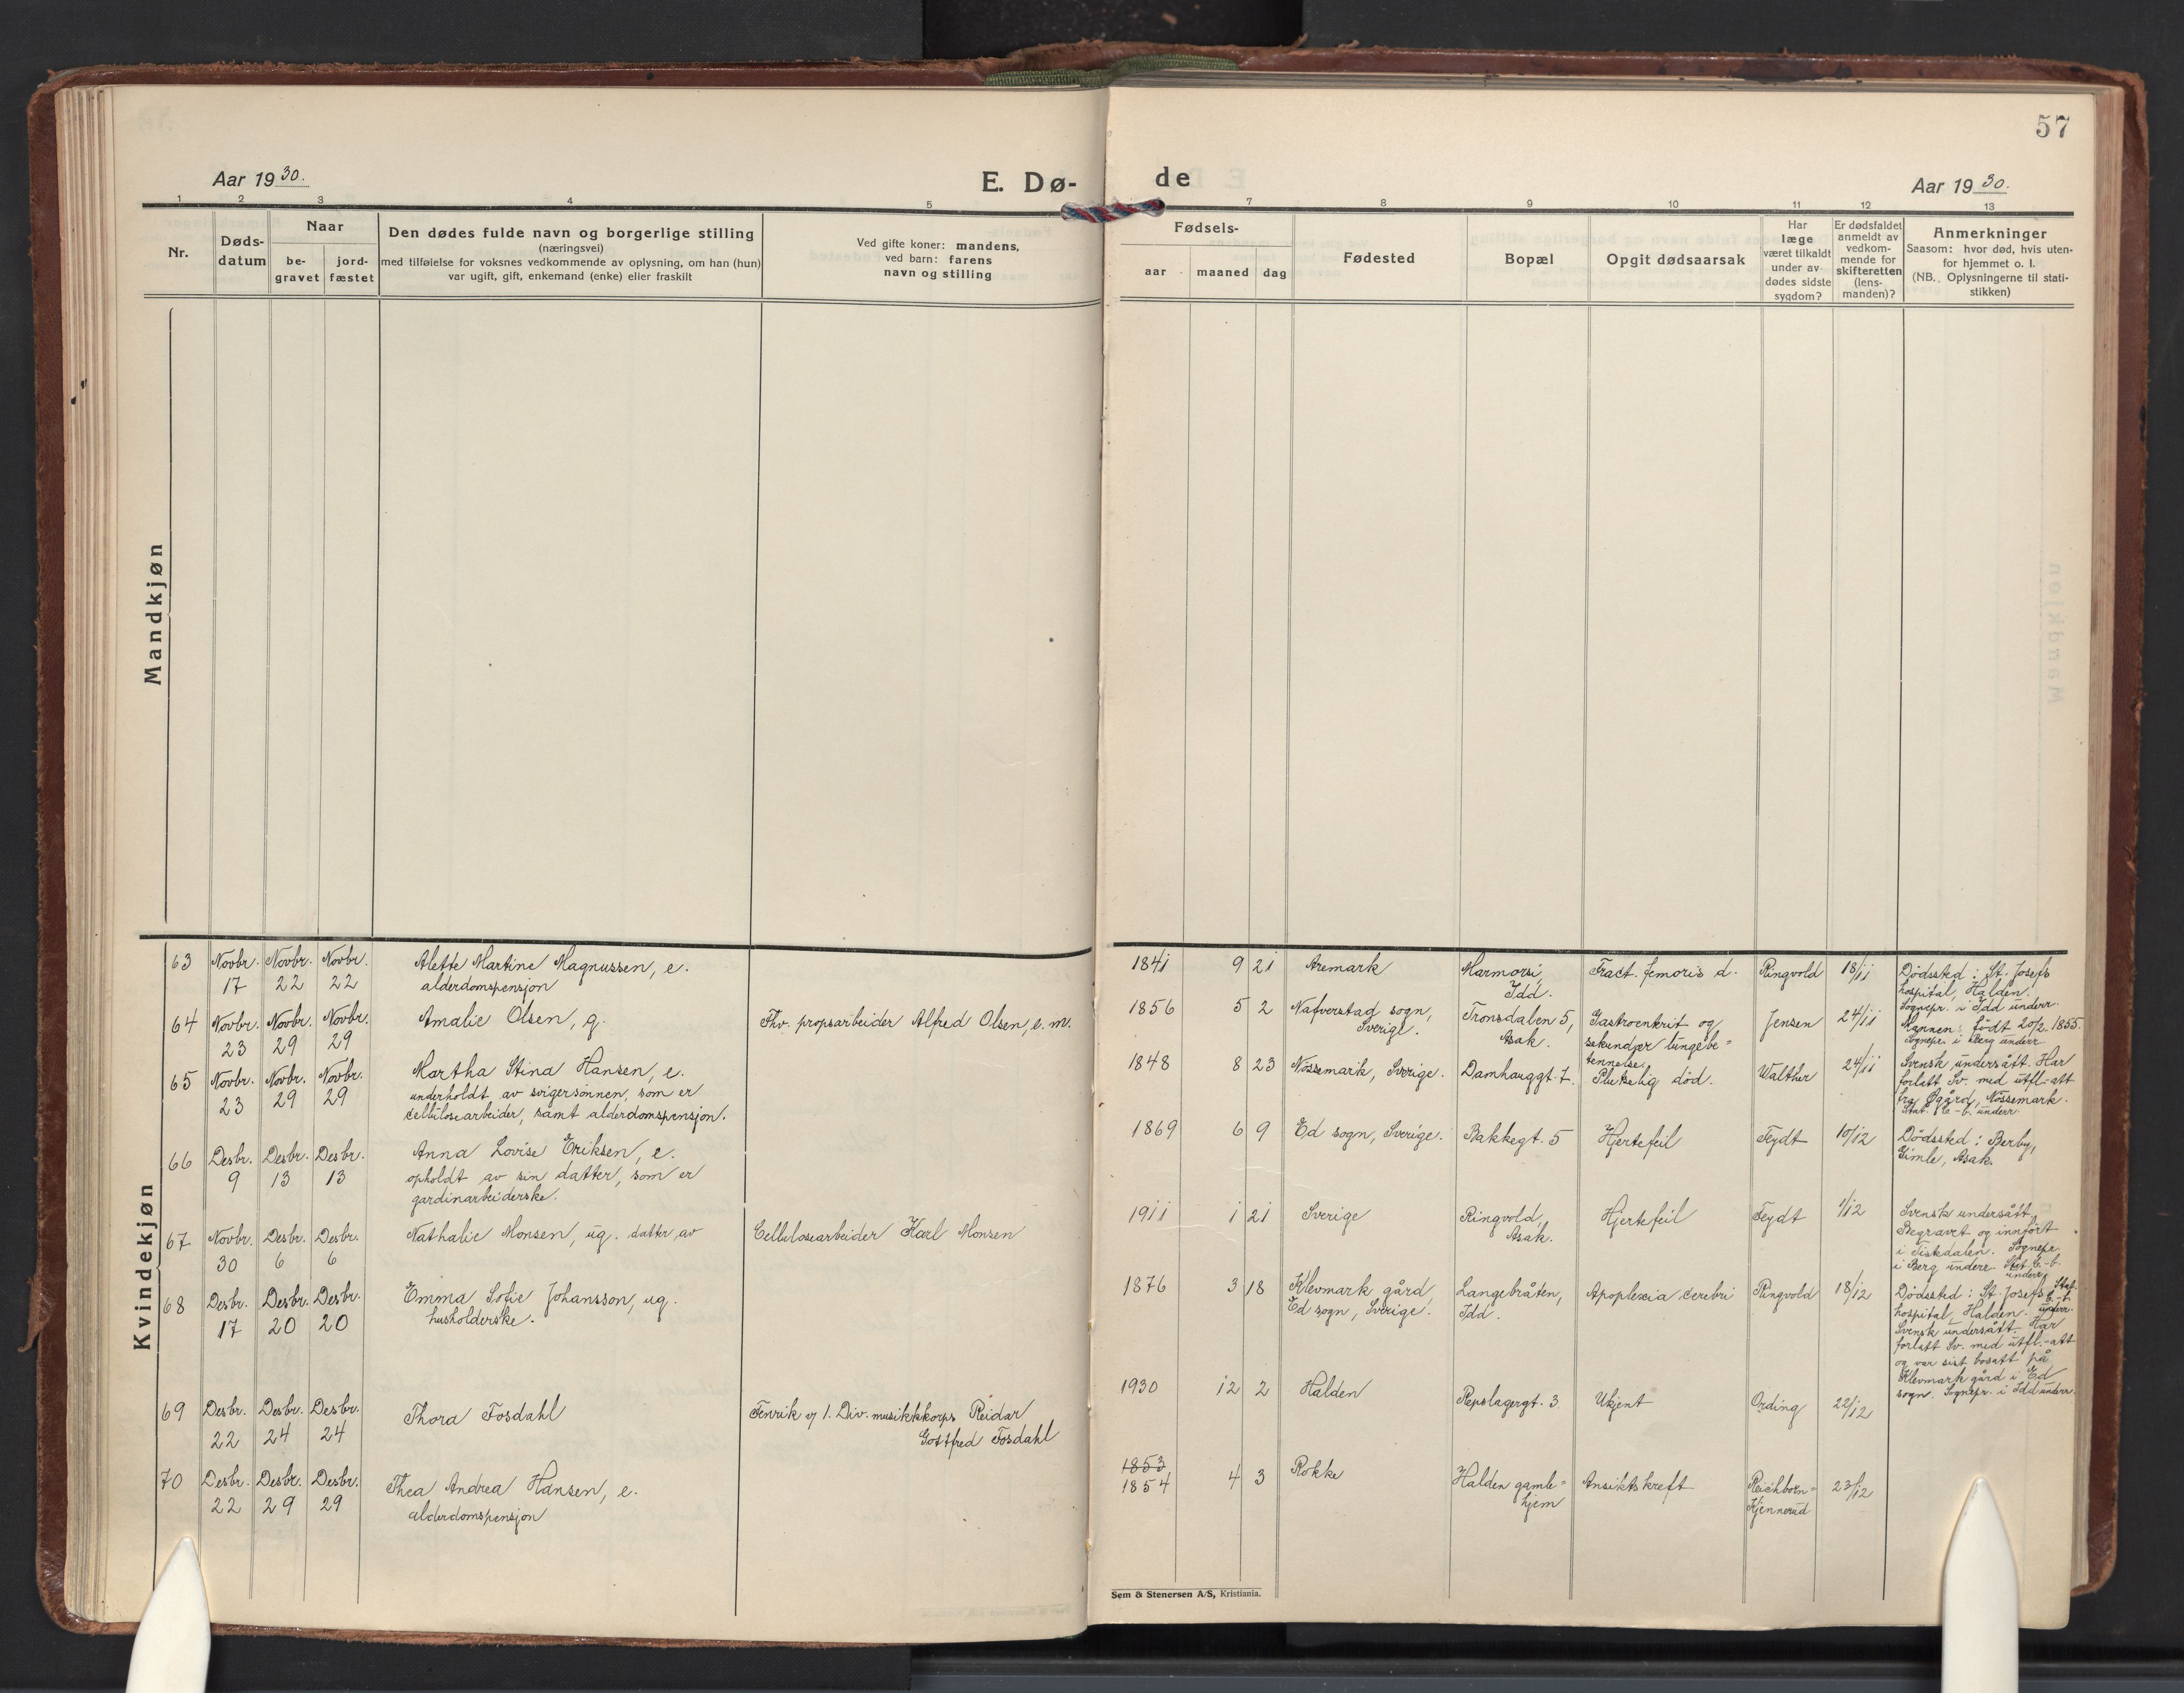 57
Aar 1930.
E. Dø-
de
Aar 1930.
1 2 3 4 5 7 8 9 10 11 12 13
Nr.
Døds-
datum
Naar
be-
gravet
jord-
fæstet
Den dødes fulde navn og borgerlige stilling
(næringsvei)
med tilføielse for voksnes vedkommende av oplysning, om han (hun)
var ugift, gift, enkemand (enke) eller fraskilt
Ved gifte koner: mandens,
ved barn: farens
navn og stilling
Fødsels-
aar maaned dag
Fødested
Bopæl
Opgit dødsaarsak
Har
læge
været tilkaldt
under av-
dødes sidste
sygdom?
Er dødsfaldet
anmeldt av
vedkom-
mende for
skifteretten
(lens-
manden)?
Anmerkninger
Saasom: hvor død, hvis uten-
for hjemmet o. l.
(NB. Oplysningerne til stati-
stikken)
Mandkjøn
Kvindekjøn
63 Novbr. 17 Novbr. 22 Novbr. 22
Alette Martine Magnussen, e.
alderdomspensjon
1841 9 21 Aremark
Marmorsi,
Idd.
Fract. femoris d. Ringvold 18/11
Dödssted: St. Josefs
hospital, Halden.
Sognepr. i Idd underr.
64 Novbr. 23 Novbr. 29 Novbr. 29
Amalie Olsen, g.
Fhv. propsarbeider Alfred Olsen, e. m.
1856 5 2
Nafverstad sogn,
Sverige.
Tronsdalen 5,
Asak.
Gastroenterit og
sekundær lungebe=
tennelse.
Jensen 24/11
Mannen: födt 20/2. 1855.
Sognepr. i Berg underr.
65 Novbr. 23 Novbr. 29 Novbr. 29
Martha Stina Hansen, e.
underholdt av svigersönnen, som er
cellulosearbeider, samt alderdomspensjon.
1848 8 23 Nössemark, Sverige. Damhauggt. 7. Plutselig död. Walther 24/11
Svensk undersått. Har
forlatt Sv. med utfl.-att
fra Øgård, Nössemark.
Stat. C.-b. underr.
66 Desbr. 9 Desbr. 13 Desbr. 13
Anna Lovise Eriksen, e.
opholdt av sin datter, som er
gardinarbeiderske.
1869 6 9 Ed sogn, Sverige. Bakkegt. 5 Hjertefeil Feydt 10/12
Dödssted: Berby,
Gimle, Asak.
67 Novbr. 30 Desbr. 6 Desbr. 6
Nathalie Monsen, ug. datter av
Cellulosearbeider Karl Monsen
1911 1 21 Sverige
Ringvold,
Asak.
Hjertefeil Feydt 1/12
Svensk undersått,
Begravet og innfört
i Tistedalen. Sognepr.
i Berg underr. Stat. C.-b.
underr.
68 Desbr. 17 Desbr. 20 Desbr. 20
Emma Sofie Johansson, ug.
husholderske.
1876 3 18
Klevmark gård,
Ed sogn, Sverige.
Langebråten,
Idd.
Apoplexia cerebri Ringvold 18/12
Dödssted: St. Josefs
hospital, Halden.
Stat.
C.-b.
underr.
Svensk undersått. Har
forlatt Sv. med utfl.-att
og var sist bosatt på
Klevmark gård i Ed
sogn. Sognepr. i Idd underr.
69 Desbr. 22 Desbr. 24 Desbr. 24
Thora Fosdahl
Fenrik v/ 1. Div. musikkkorps Reidar
Gottfred Fosdahl
1930 12 2 Halden Repslagergt. 3 Ukjent Ording 22/12
70 Desbr. 22 Desbr. 29 Desbr. 29
Thea Andrea Hansen, e.
alderdomspensjon
1853
1854 4 3 Rokke
Halden gamle=
hjem
Ansiktskreft
Reichborn=
Kjennerud
23/12
Sem & Stenersen A/S, Kristiania.